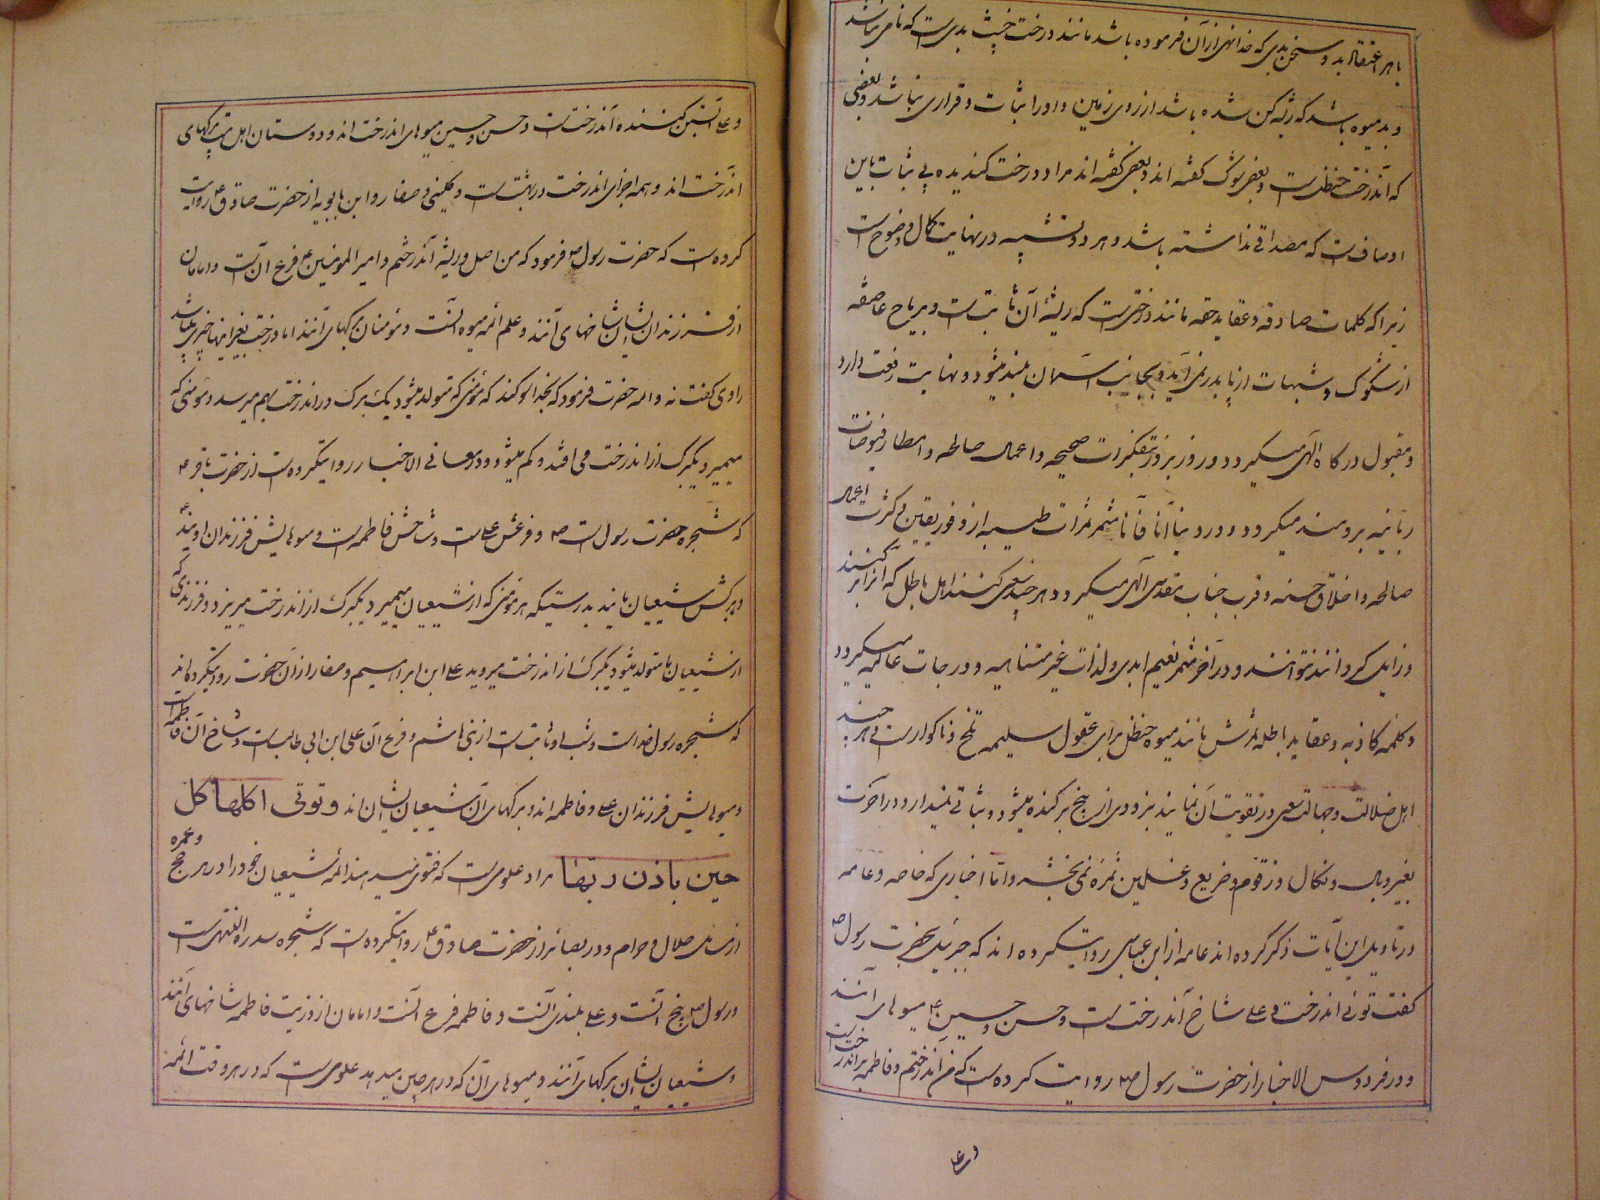 یا هر اعتقاد بد و سخن بدی که خدا نهی از آن فرموده باشد مانند درخت خبیث بدی است که نامی نباشد
و بد میوه باشد که ریشه کن شده باشد از روی زمین و او را ثبات و قراری نباشد و بعضی
که آندرخت حنظل است و بعضی گفته اند و بعضی گفته اند مراد درخت گندیده بی ثبات باین
اوصاف است که مصداقی نداشته باشد و هر دو تشبیه در نهایت کمال و وضوح است
زیرا که کلمات صادقه و عقاید حقه مانند درختی است که ریشه آن ثابت است و بریاح عاصفه
از شکوک و شبهات از پا بدر نمی آید و بجانب آسمان بلند میشود و نهایت رفعت دارد
و مقبول درگاه الهی میگردد و روز بروز بتفکرات صحیحه و اعمال صالحه و امطار فیوضات
ربانیه برومند میگردد و در دنیا آنا فآنا مثمر ثمرات طیبه از وفور یقین و کثرت اعمال
صالحه و اخلاق حسنه و قرب جناب مقدس الهی میگردد و هر چند سعی کنند اهل باطل که آنرا بر کنند
و زایل گردانند نتوانند و در آخرت مثمر نعیم ابدی و لذات غیر متناهیه و درجات عالیه میگردد
و کلمه کاذبه و عقاید باطله ثمرش مانند میوه حنظل برای عقول سلیمه تلخ و ناگوار است و هر چند
اهل ضلالت و جهالت سعی در تقویت آن نمایند بزودی از بیخ بر کنده میشود و ثباتی نمیدارد و در آخرت
بغیر وبال و نکال و زقوم و ضریع و غسلین ثمره نمی بخشد و اما اخباری که خاصه و عامه
در تاویل این آیات ذکر کرده اند عامه از ابن عباس روایت کرده اند که جبرئیل بحضرت رسول ص
گفت توئی اندرخت و علی شاخ آندرخت است و حسن و حسین ع میوهای آنند
و در فردوس الاخبار از حضرت رسول ص روایت کرده است که من آندرختم و فاطمه بر اندرخت است
و علی
و علی آبستن کننده آندرخت است و حسن و حسین میوهای اندرخت اند و دوستان اهل بیت برگهای
اندرخت اند و همه اجزای اندرخت در بهشت است و کلینی و صفار و ابن بابویه از حضرت صادق ع روایت
کرده است که حضرت رسول ص فرمود که من اصل و ریشه آندرختم و امیر المؤمنین ع فرع آن است و امامان
از فرزندان ایشان شاخهای آنند و علم ائمه میوه آنست و مؤمنان برگهای آنند ایا درخت بغیر اینها چیزی میباشد
راوی گفت نه والله حضرت فرمود که بخدا سوگند که مؤمنی که متولد میشود یک برگ در اندرخت بهم میرسد و مؤمنی که
میمیرد یکبرگ از اندرخت می افتد و کم میشود و در معانی الاخبار روایتکرده است از حضرت باقر ع
که شجره حضرت رسول است ص و فرعش علی است و شاخش فاطمه است و میوهایش فرزندان اویند ع
و برگش شیعیان مایند بدرستیکه هر مؤمنی که از شیعیان میمیرد یکبرگ از اندرخت میریزد و فرزندی که
از شیعیان ما متولد میشود یکبرگ از اندرخت میروید علی ابن ابراهیم و صفار از آن حضرت روایتکرده اند
که شجره رسول خداست و نسب او ثابت است از بنی هاشم و فرع آن علی ابن ابی طالب است و شاخ آن فاطمه است
و میوهایش فرزندان علی و فاطمه اند و برگهای آن شیعیان ایشان اند و توتی اکلها کل
حین باذن ربها مراد علومی است که فتوی میدهند ائمه شیعیان خود را در هر حج و عمره
از مسائل حلال و حرام و در بصائر از حضرت صادق ع روایتکرده است که شجره سدرة المنتهی است
و رسول ص بیخ آنست و علی بلندی آنست و فاطمه فرع آنست و امامان از ذریت فاطمه شاخهای آنند
و شیعیان ایشان برگهای آنند و میوهای آن که در هر حین میدهد علومی است که در هر وقت ائمه